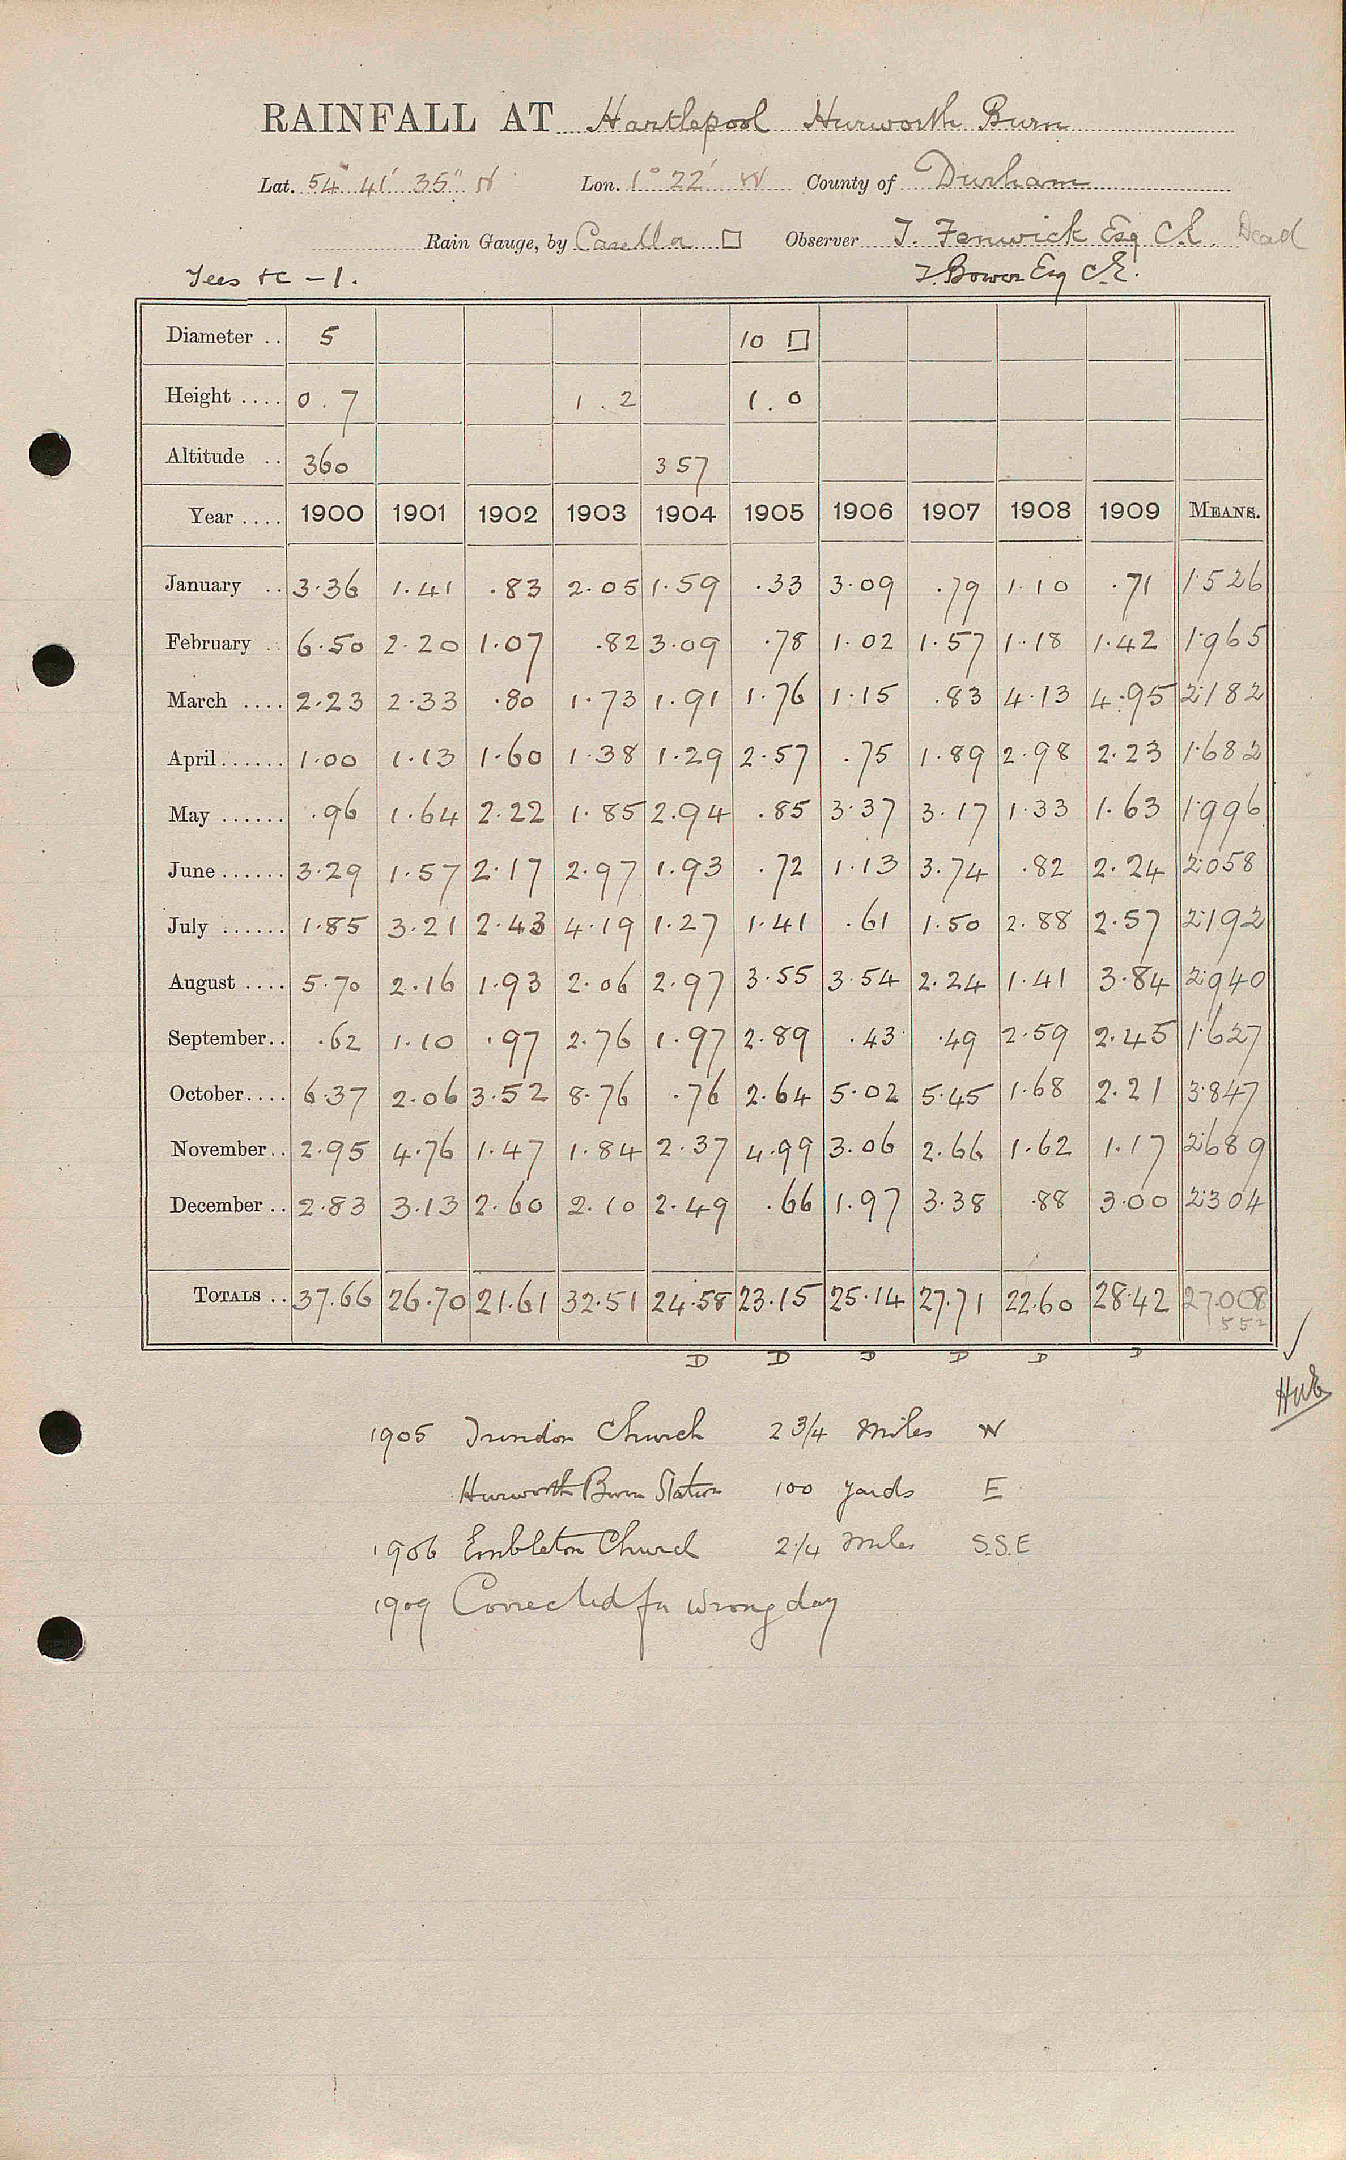 RAINFALL AT Hartlepool Hurworth Burn
Lat. 54° 41' 35" N Lon. 1° 22' W County of Durham
Rain Gauge, by Casella □ Observer T. Fenwick Esq C.E. Dead
Tees &c - 1. T. Bower Esq C.E.
Diameter .. 5 10 □
Height .... 0.7 1.2 1.0
Altitude .. 360 357
Year .... 1900 1901 1902 1903 1904 1905 1906 1907 1908 1909 MEANS.
January .. 3.36 1.41 .83 2.05 1.59 .33 3.09 .79 1.10 .71 1.526
February .. 6.50 2.20 1.07 .82 3.09 .78 1.02 1.57 1.18 1.42 1.965
March .... 2.23 2.33 .80 1.73 1.91 1.76 1.15 .83 4.13 4.95 2.182
April ...... 1.00 1.13 1.60 1.38 1.29 2.57 .75 1.89 2.98 2.23 1.682
May ...... .96 1.64 2.22 1.85 2.94 .85 3.37 3.17 1.33 1.63 1.996
June ...... 3.29 1.57 2.17 2.97 1.93 .72 1.13 3.74 .82 2.24 2.058
July ...... 1.85 3.21 2.43 4.19 1.27 1.41 .61 1.50 2.88 2.57 2.192
August .... 5.70 2.16 1.93 2.06 2.97 3.55 3.54 2.24 1.41 3.84 2.940
September.. .62 1.10 .97 2.76 1.97 2.89 .43 .49 2.59 2.45 1.627
October.... 6.37 2.06 3.52 8.76 .76 2.64 5.02 5.45 1.68 2.21 3.847
November.. 2.95 4.76 1.47 1.84 2.37 4.99 3.06 2.66 1.62 1.17 2.689
December .. 2.83 3.13 2.60 2.10 2.49 .66 1.97 3.38 .88 3.00 2.304
TOTALS .. 37.66 26.70 21.61 32.51 24.58 23.15 25.14 27.71 22.60 28.42 27.008
552
D D D D D D
1905 Trimdon Church 2 3/4 Miles W
Hurworth Burn Station 100 yards E
1906 Embleton Church 2 1/4 Miles S.S.E
1909 Corrected for wrong day